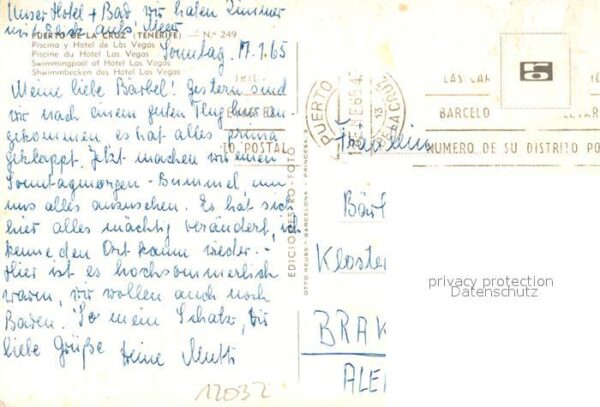 Unser Hotel + Bad wir haben Zimmer
mit aufs Meer
PUERTO DE LA CRUZ (TENERIFE) — N.º 249
Piscina y Hotel de Las Vegas
Piscine du Hotel Las Vegas
Swimmingpool of Hotel Las Vegas
Shwimmbecken des Hotel Las Vegas
Sonntag, 17.1.65
Meine liebe Bärbel! Gestern sind
wir nach einem guten Flug hier an-
gekommen es hat alles prima
geklappt. Jetzt machen wir einen
Sonntagmorgen-Bummel um
uns alles anzusehen. Es hat sich
hier alles mächtig verändert, ich
kenne den Ort kaum wieder.-
Hier ist es hochsommerlich
warm, wir wollen auch noch
Baden. So mein Schatz, Dir
liebe Grüße Deine Mutti
12032
EDICIONES RO-FOTO
OTTO REUSS - BARCELONA - PRINCESA, 3
PUERTO
CRUZ
LAS CAR
BARCELO
LLEVAR
TO POSTAL
NUMERO DE SU DISTRITO PO
Fräulein
Bärb
Kloster
BRAK
ALE
privacy protection
Datenschutz